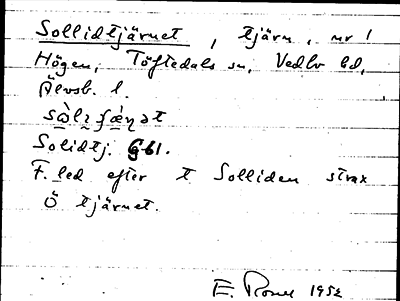 Sollidtjärnet, tjärn, nr 1
Högen, Töftedals sn, Vedbo hd,
Älvsb. l.
Solidtj. GB1.
F. led efter t Solliden strax
Ö tjärnet.
E. 1952